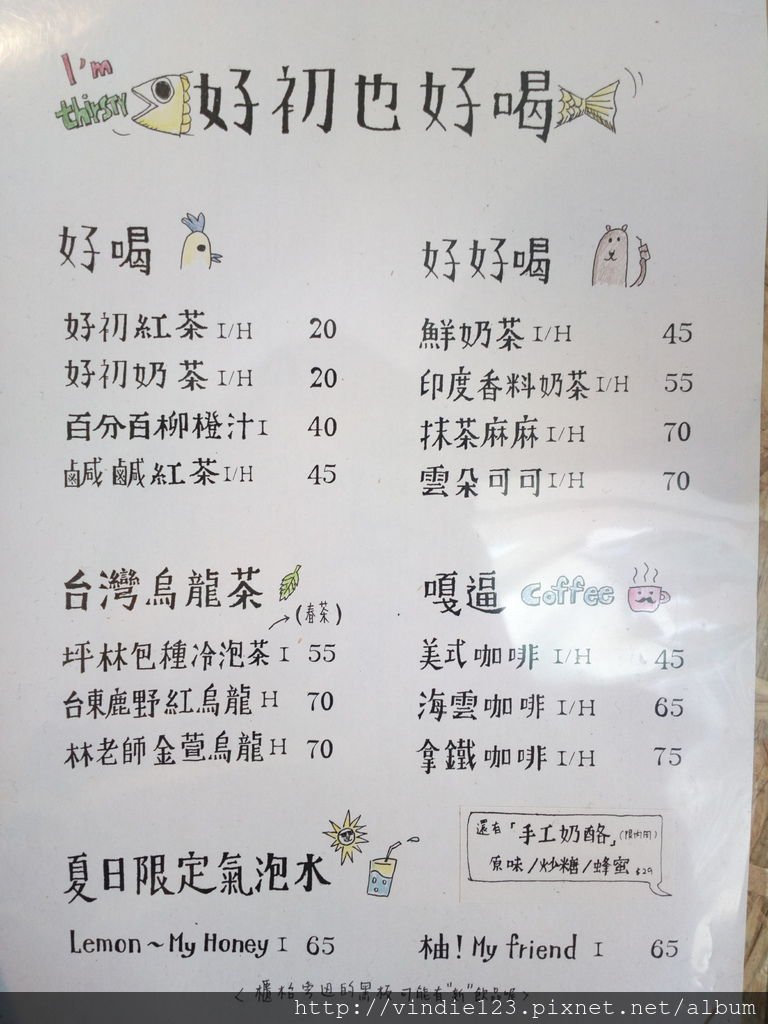 I'm
thirsty
好初也好喝
好喝
好初紅茶 I/H 20
好初奶茶 I/H 20
百分百柳橙汁 I 40
鹹鹹紅茶 I/H 45
好好喝
鮮奶茶 I/H 45
印度香料奶茶 I/H 55
抹茶麻麻 I/H 70
雲朵可可 I/H 70
台灣烏龍茶
(春茶)
坪林包種冷泡茶 I 55
台東鹿野紅烏龍 H 70
林老師金萱烏龍 H 70
嘎逼 coffee
美式咖啡 I/H 45
海雲咖啡 I/H 65
拿鐵咖啡 I/H 75
還有「手工奶酪」(限內用)
原味/炒糖/蜂蜜 $29
夏日限定氣泡水
Lemon~My Honey I 65
柚! My friend I 65
<櫃枱旁邊的黑板可能有"新"飲品喔>
http://vindie123.pixnet.net/album